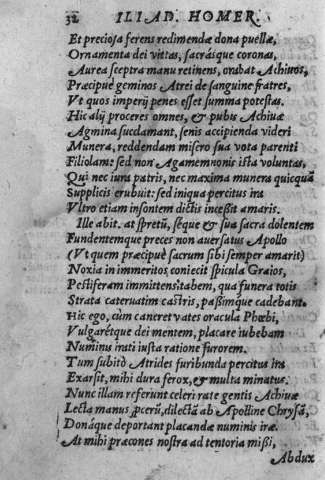 32 ILIAD. HOMER.
Et preciosa ferens redimendæ dona puellæ,
Ornamenta dei vittas, sacrásque coronas,
Aurea sceptra manu retinens, orabat Achiuos,
Præcipuè geminos Atrei de sanguine fratres,
Vt quos imperij penes esset summa potestas.
Hic alij proceres omnes, & pubis Achiuæ
Agmina succlamant, senis accipienda videri
Munera, reddendam misero sua vota parenti
Filiolam: sed non Agamemnonis ista voluntas,
Qui nec iura patris, nec maxima munera quicquã
Supplicis erubuit: sed iniqua percitus ira
Vltro etiam insontem dictis incessit amaris.
Ille abit. at spretũ, séque & sua sacra dolentem
Fundentemque preces non auersatus Apollo
(Vt quem præcipuè sacrum sibi semper amarit)
Noxia in immeritos coniecit spicula Graios,
Pestiferam immittens tabem, qua funera totis
Strata cateruatim castris, paßimque cadebant.
Hic ego, cùm caneret vates oracula Phœbi,
Vulgarétque dei mentem, placare iubebam
Numinis irati iusta ratione furorem.
Tum subitò Atrides furibunda percitus ira
Exarsit, mihi dura ferox, & multa minatus.
Nunc illam referunt celeri rate gentis Achiuæ
Lecta manus ꝓcerũ, dilectã ab Apolline Chrysã,
Donáque deportant placandæ numinis iræ.
At mihi præcones nostra ad tentoria mißi,
Abdux